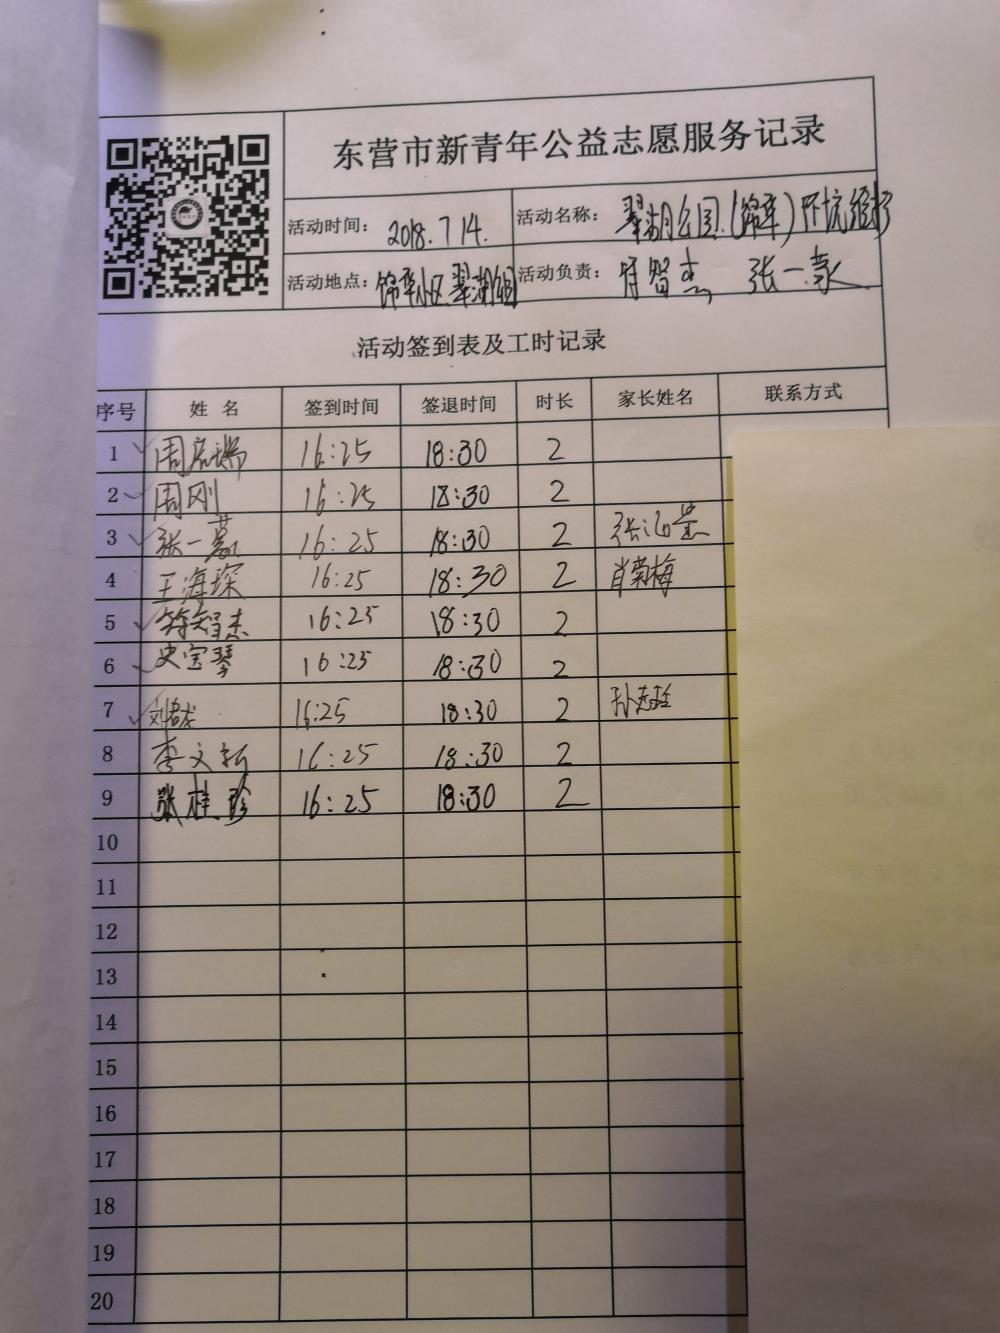 东营市新青年公益志愿服务记录
活动时间： 2018.7 14. 活动名称： 翠湖公园.(锦华)环境维护
活动地点： 锦华小区.翠湖公园 活动负责： 智杰 张一
活动签到表及工时记录
序号 姓 名 签到时间 签退时间 时长 家长姓名 联系方式
1 周启瑞 16:25 18:30 2
2 周刚 16:25 18:30 2
3 张一 16:25 18:30 2 张
4 王海琛 16:25 18:30 2 肖菊梅
5 智杰 16:25 18:30 2
6 史宝琴 16:25 18:30 2
7 刘 16:25 18:30 2 孙志玲
8 李文新 16:25 18:30 2
9 张桂珍 16:25 18:30 2
10
11
12
13
14
15
16
17
18
19
20